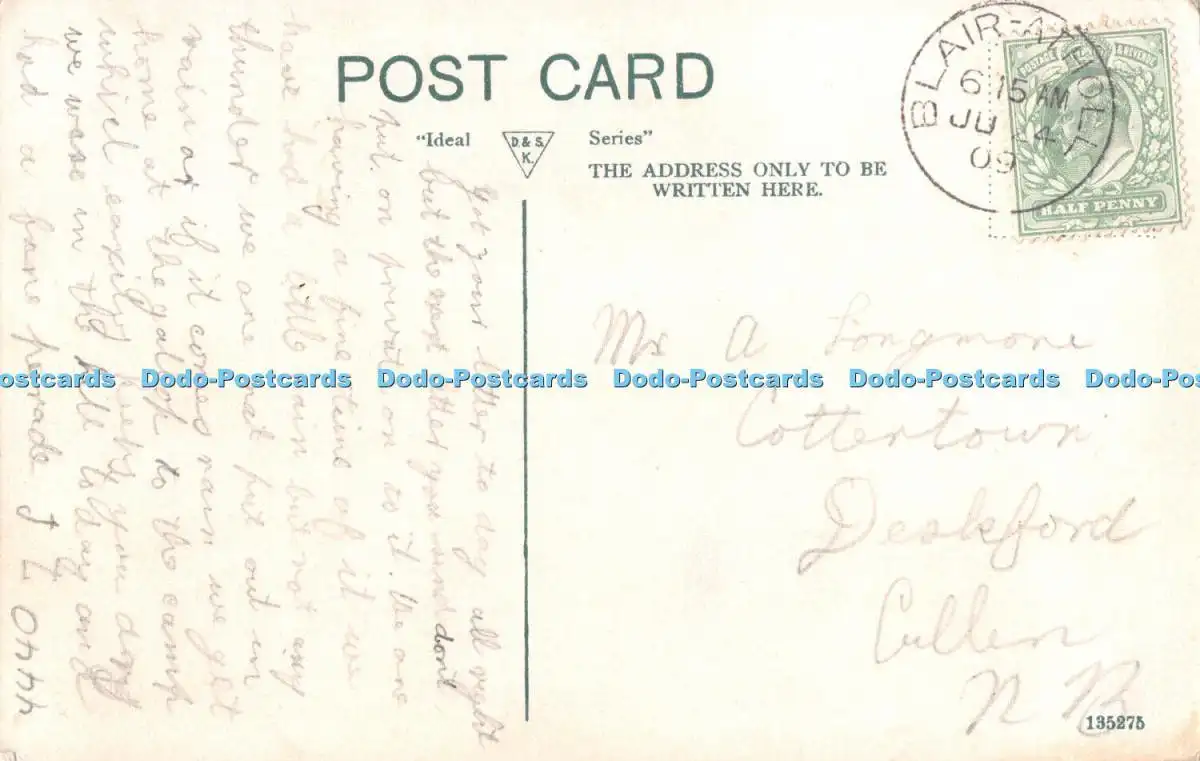 POST CARD
"Ideal D.& S. K. Series"
THE ADDRESS ONLY TO BE
WRITTEN HERE.
BLAIR-ATHOLL
6 15 AM
JU 24
09
POSTAGE & REVENUE
HALF PENNY
Got your letter to day all right
but the next letter you send dont
put on private on to it. We are
having a fine time of it we
have had a little rain but not any
thunder we are not put out in
rain or if it comes rain we get
home at the gallop to the camp
which easily you dont
we wase in the hill to day and
had a fane perade J L 0440
Mr A Longmore
Cottertown
Deskford
Cullen
N B
135275
Dodo-Postcards Dodo-Postcards Dodo-Postcards Dodo-Postcards Dodo-Postcards